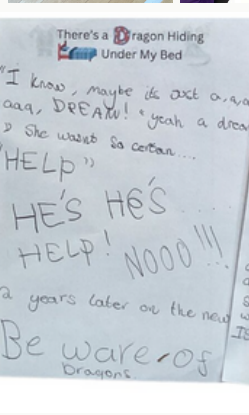 There's a Dragon Hiding
Under My Bed
"I know, maybe its just a, a, a
aaa, DREAM! "yeah a drea
She wasnt so certan....
"HELP"
HE'S HE'S ....
HELP! NOOO!!!
2 years later on the new
Be ware-of
Dragons.